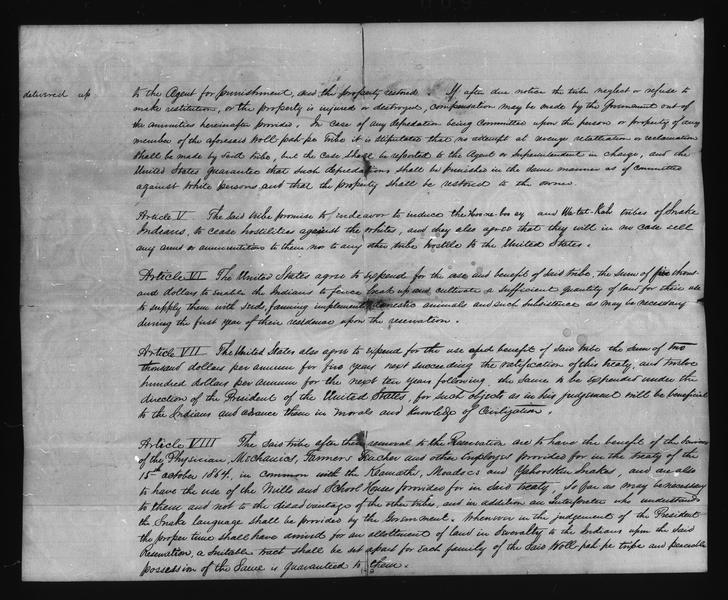 delivered up
to the Agent for punishment, and the property restored. If after due notice the tribe neglect or refuse to
make restitution, or the property is injured or destroyed, compensation may be made by the Government out of
the annuities hereinafter provided. In case of any depredation being Committed upon the person or property of any
member of the aforesaid Woll-pah-pe Tribe it is stipulated that no attempt at revenge retaliation or reclamation
Shall be made by said tribe, but the case shall be reported to the Agent or Superintendent in charge, and the
United States guarantee that such depredations shall be punished in the same manner as if committed
against white persons and that the property shall be restored to the owner.
Article V The said tribe promise to endeavor to induce the Hoo-ne-boo-ey and Wa-tat-Kah tribes of Snake
Indians, to cease hostilities against the whites, and they also agree that they will in no case sell
any arms or ammunitions to them nor to any other tribe hostile to the United States.
Article VI The United States agree to expend for the use and benefit of said tribe, the sum of five thous-
and dollars to enable the Indians to fence break up and cultivate a sufficient quantity of land for their use
to supply them with seeds, farming implements, domestic animals and such subsistence as may be necessary
during the first year of their residence upon the reservation.
Article VII The United States also agree to expend for the use and benefit of said tribe the sum of two
thousand dollars per annum for five years next succeeding the ratification of this treaty, and twelve
hundred dollars per annum for the next ten years following, the same to be expended under the
direction of the President of the United States, for such objects as in his judgement will be beneficial
to the Indians and advance them in morals and knowledge of Civilization.
Article VIII The said tribe after their removal to the Reservation are to have the benefit of the Services
of the Physician, Mechanics, Farmers Teacher and other employes provided for in the treaty of the
15th October 1864, in common with the Klamaths, Moadocs and Yahooskin Snakes, and are also
to have the use of the Mills and School Houses provided for in said treaty, so far as may be necessary
to them and not to the disadvantage of the other tribes, and in addition an interpreter who understands
the Snake language shall be provided by the Government. Whenever in the judgement of the President
the proper time shall have arrived for an allotment of land in Severalty to the Indians upon the said
Reservation, a suitable tract shall be set apart for each family of the said Woll-pah-pe tribe and peaceable
possession of the same is guaranteed to them.